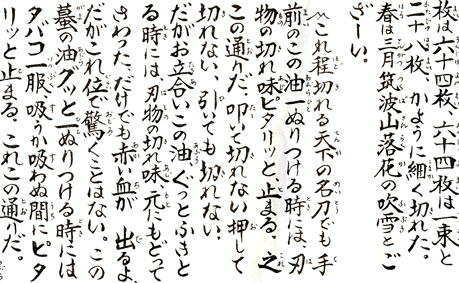 枚は六十四枚 六十四枚は一束と
二十八枚、かように細く切れた。
春は三月筑波山落花の吹雪とご
ざーい。
これ程切れる天下の名刀でも手
前のこの油一ぬりつける時には、刃
物の切れ味ピタリッと、止まる、之
この通りだ、叩いて切れない押して
切れない、引いても切れない、
だがお立合いこの油ぐっとふきと
る時には刃物の切れ味元にもどって
さわっただけでも赤い血が 出るよ
だがこれ位で驚くことはない。この
蟇の油グッと一ぬりつける時には
タバコ一服、吸うか吸わぬ間にピタ
リッと止まる、これこの通りだ。